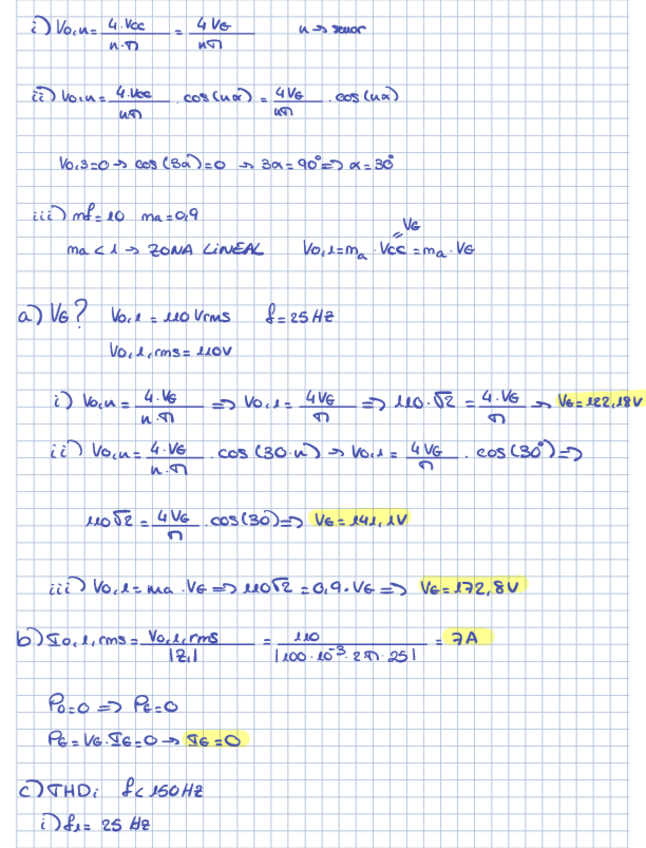 i) Vo,n = 4·Vcc / n·π = 4VG / nπ   n → senar
ii) Vo,n = 4·Vcc / nπ · cos(nα) = 4VG / nπ · cos(nα)
Vo,3=0 → cos(3α)=0 → 3α=90° ⇒ α=30°
iii) mf=10 ma=0,9
VG
ma < 1 → ZONA LINEAL Vo,1=ma·Vcc=ma·VG
a) VG? Vo,1 = 110 Vrms f=25 Hz
Vo,1,rms= 110V
i) Vo,n = 4·VG / n·π ⇒ Vo,1= 4VG / π ⇒ 110·√2 = 4·VG / π → VG=122,18V
ii) Vo,n= 4·VG / n·π · cos(30·n) → Vo,1= 4VG / π · cos(30°) ⇒
110√2 = 4VG / π · cos(30) ⇒ VG=141,1V
iii) Vo,1= ma·VG ⇒ 110√2 = 0,9·VG ⇒ VG=172,8V
b) Io,1,rms= Vo,1,rms / |Z1| = 110 / |100·10⁻³·2π·25| = 7A
Po=0 ⇒ PG=0
PG=VG·IG=0 → IG=0
c) THDi f<150Hz
i) f1= 25 Hz